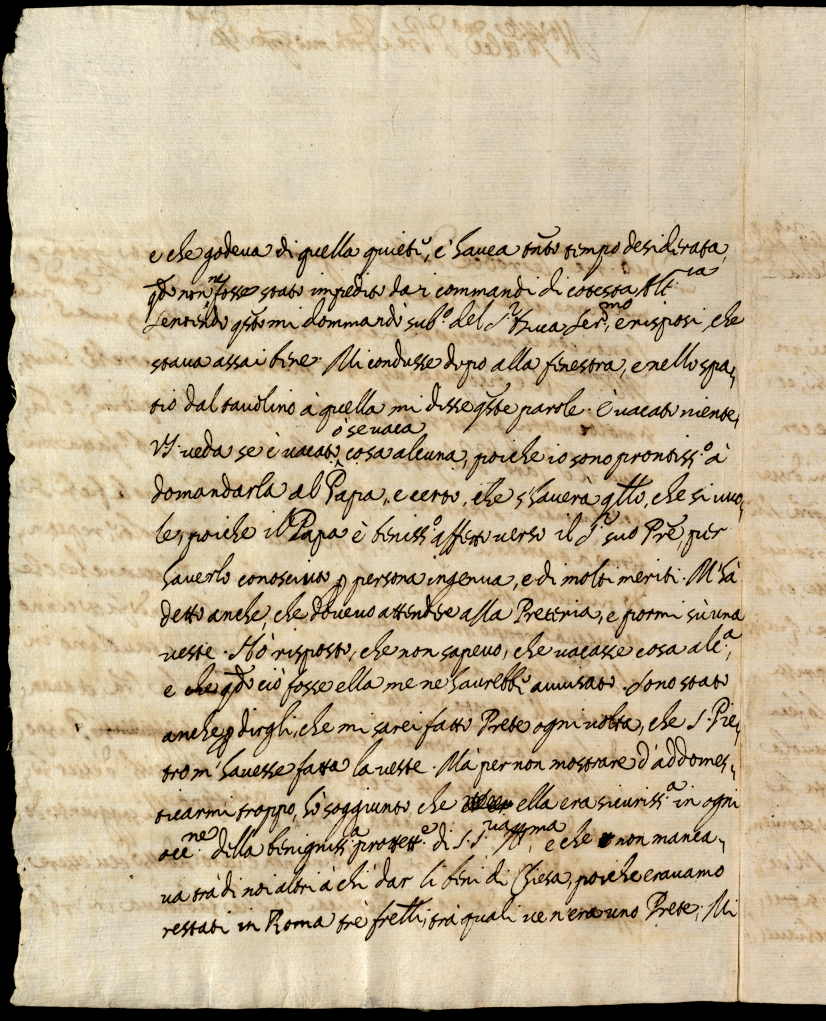 e che godeva di quella quiete, c'havea tñto tempo desiderata,
qdo non ne fosse stato impedito da i commandi di cotesta Alt.
Sentendo qsto mi dommandò sub.o del S.r Duca Ser.mo, e risposi, che
stava assai bene. Mi condusse dopo alla finestra, e nello spa,
tio dal tavolino à quella mi disse qste parole. È vacato niente,
VS. veda se è vacato, ò se vaca cosa alcuna, poiche io sono prontiss.o à
domandarla al Papa, e certo, che s'haverà qllo, che si vuo,
le, poiche il Papa è beniss.o affetto verso il S.r suo Prẽ, per
haverlo conosciuto p persona ingenua, e di molti meriti. M'hà
detto anche, che dovevo attendere alla Preteria, e pormi sù una
veste. Hò risposto, che non sapevo, che vacasse cosa alc.a,
e che qdo ciò fosse ella me ne haurebbe avvisato. Sono stato
anche p dirgli, che mi sarei fatto Prete ogni volta, che S. Pie,
tro m'havesse fatta la veste. Mà per non mostrare d'addomes,
ticarmi troppo, hò soggiunto che ella era sicuriss.a in ogni
occ.ne della benigniss.a protett.e di S.S. e che non manca,
va trà di noi altri à chi dar li beni di Chiesa, poiche eravamo
restati in Roma trè frelli, trà quali ve n'era uno Prete; Mi